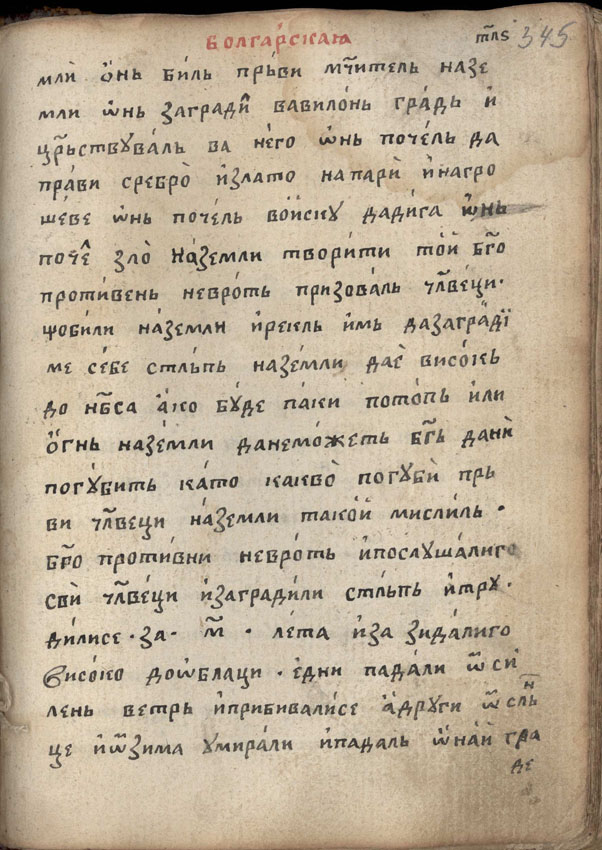 болга́рскаѧ тл҃ѕ 345
мли̇̀ ѻ҆́нь би́ль прь́ви мч҃итель назе
мли ѡ҆нь загради̇̂ вавило́нь гра́дь и҆
цр҃ьствꙋва́ль ва не́го ѡ҆нь поче́ль да
пра́ви сребро̀ и҆злато напари̇̀ и҆нагро
шеве ѡ҆нь поче́ль во́йскꙋ дади́га ѡ҆нь
поче̂ зло̀ на́земли твори́ти то́й бг҃о
проти́вень невро́ть призова́ль чл҃ве́ци·
що били на́земли и҆рекль и҆мь дазагра́дї
ме се́бе стль́пь назе́мли даѐ висо́кь
до нб҃са а҆́ко бꙋ́де па́ки пото́пь и҆ли
ѻ҆́гнь назе́мли данемо́жеть бг҃ь дани̇̀
погꙋ́бить ка́то какво̀ погꙋби̇̀ прь
ви чл҃веци на́земли тако́й мисли́ль·
бг҃о проти́вни невро́ть и҆послꙋша́лиго
сви̇̀ чл҃ве́ци и҆загради́ли стль́пь и҆трꙋ·
ди́лисе·за·м҃·ле́та и҆за зида́лиго
високо доѡ҆́блаци·е҆дни пада́ли ѿ си́
лень ветрь и҆прибивали́се а҆́дрꙋги ѿ слн҃ь
це и҆ѿзима ꙋмира́ли и҆пада́ль ѡ҆на́й гра
де